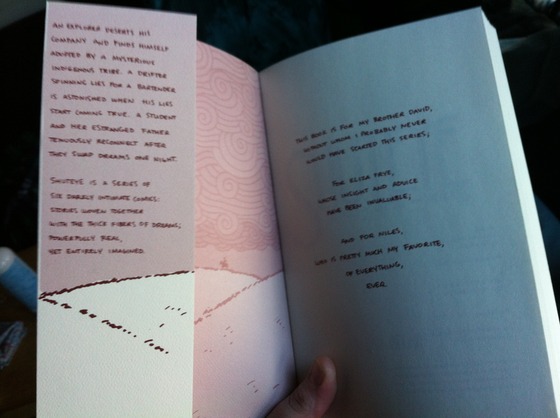 AN EXPLORER DESERTS HIS
COMPANY AND FINDS HIMSELF
ADOPTED BY A MYSTERIOUS
INDIGENOUS TRIBE. A DRIFTER
SPINNING LIES FOR A BARTENDER
IS ASTONISHED WHEN HIS LIES
START COMING TRUE. A STUDENT
AND HER ESTRANGED FATHER
TENUOUSLY RECONNECT AFTER
THEY SWAP DREAMS ONE NIGHT.
SHUTEYE IS A SERIES OF
SIX DARKLY INTIMATE COMICS:
STORIES WOVEN TOGETHER
WITH THE THICK FIBERS OF DREAMS;
POWERFULLY REAL,
YET ENTIRELY IMAGINED.
THIS BOOK IS FOR MY BROTHER DAVID,
WITHOUT WHOM I PROBABLY NEVER
WOULD HAVE STARTED THIS SERIES;
FOR ELYSA FRYE,
WHOSE INSIGHT AND ADVICE
HAVE BEEN INVALUABLE;
AND FOR NILES,
WHO IS PRETTY MUCH MY FAVORITE,
OF EVERYTHING,
EVER.